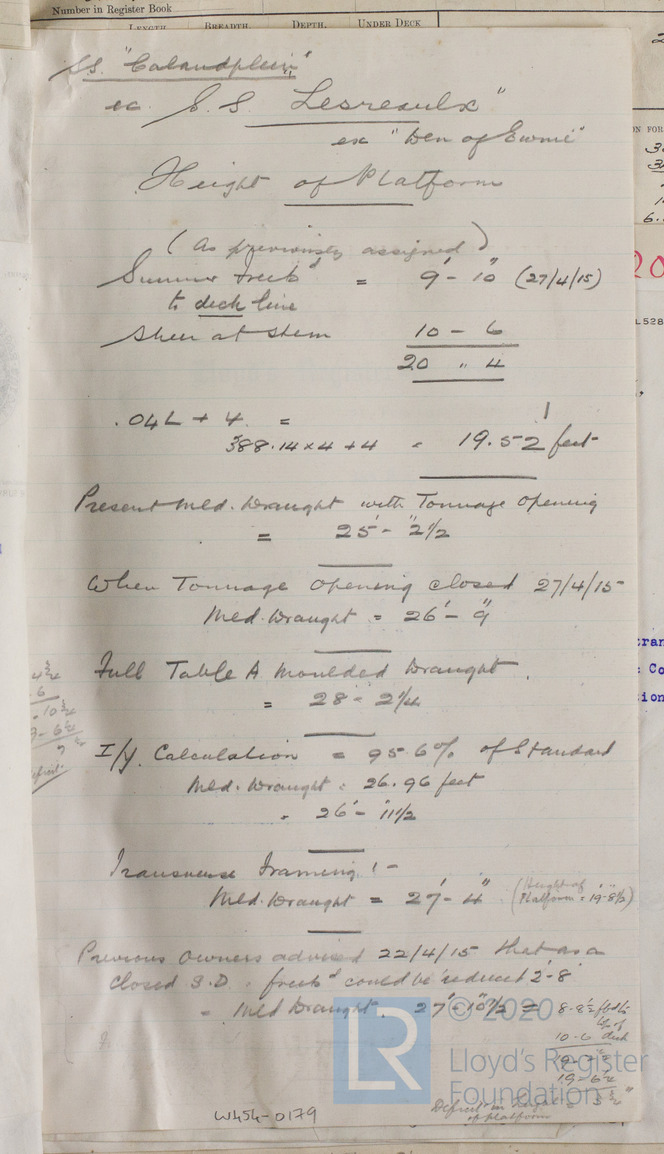 Number in Register Book
LENGTH. BREADTH. DEPTH. UNDER DECK
S.S. "Calandplein"
ex. S.S. Lesreaulx"
ex "Den of Ewnie"
Height of Platform
(As previously assigned)
Summer Freeb^d = 9'- 10" (27/4/15)
to deck line
Sheer at Stem 10 - 6
20 " 4
.04L + 4. =
388.14 x 4 + 4 = 19.52 feet
Present Mld. Draught with Tonnage Opening
= 25'- 2 1/2
When Tonnage Opening closed 27/4/15
Mld. Draught = 26'- 9"
Full Table A Moulded Draught.
= 28 - 2 1/4
I/y. Calculation = 95.6% of Standard
Mld. Draught = 26.96 feet
= 26'- 11 1/2
Transverse Framing :-
Mld. Draught = 27'- 4" (Height of
Platform = 19-8 1/2)
Previous Owners advised 22/4/15 that as a
closed S.D. freeb^d could be reduced 2'-8"
= Mld Draught. 27'-10 1/2 = 8-8 1/2 fbd to
top of
deck
10-6
19-6 1/2
Deficit in height
of platform
W454-0179
© 2020
Lloyd's Register
Foundation
LR